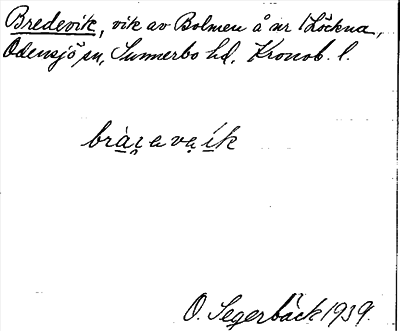 Bredevik, vik av Bolmen å nr 1 Löckna,
Odensjö sn, Sunnerbo hd, Kronob. l.
O. Segerbäck 1939.